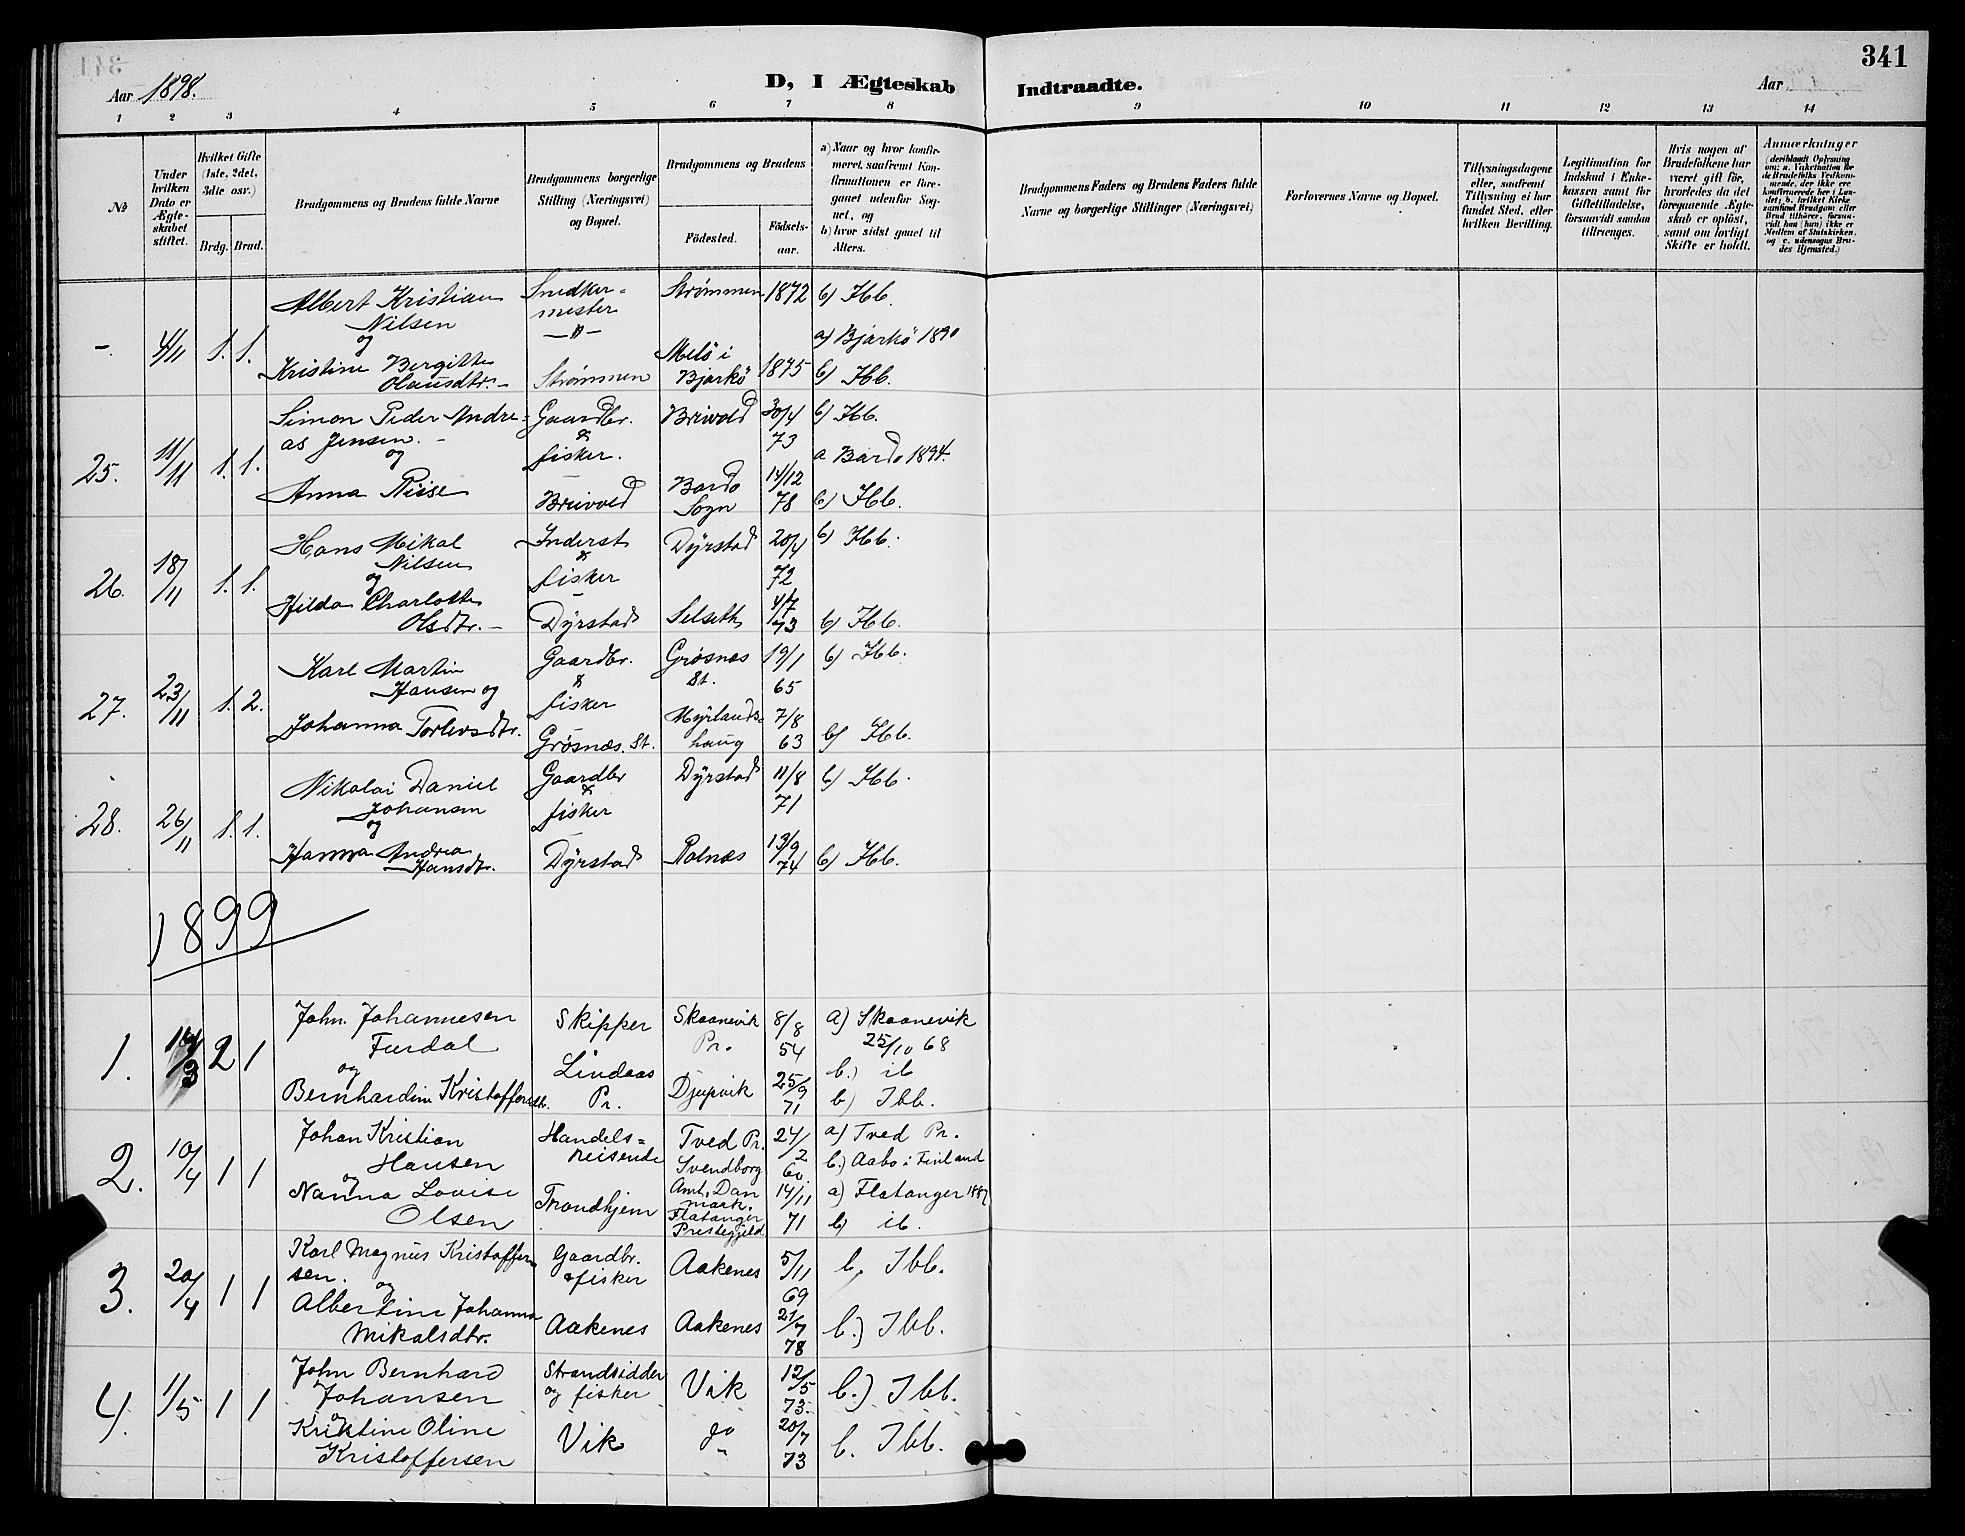 341
Aar 1898.
D, I Ægteskab Indtraadte.
Aar
1 2 3 4 5 6 7 8 9 10 11 12 13 14
№
Under hvilken Dato er Ægteskabet stiftet.
Hvilket Gifte (1ste, 2det, 3die osv.)
Brdg. Brud.
Brudgommens og Brudens fulde Navne
Brudgommens borgerlige Stilling (Næringsvei) og Bopæl.
Brudgommens og Brudens
Fødested. Fødselsaar.
a) Naar og hvor konfirmeret, saafremt Konfirmationen er foregaaet udenfor Sognet, og
b) hvor sidst gaaet til Alters.
Brudgommens Faders og Brudens Faders fulde Navne og borgerlige Stillinger (Næringsvei)
Forlovernes Navne og Bopæl.
Tillysningsdagene eller, saafremt Tillysning ei har fundet Sted, efter hvilken Bevilling.
Legitimation for Indskud i Enkekassen samt for Giftetilladelse, forsaavidt saadan tiltrænges.
Hvis nogen af Brudefolkene har været gift før, hvorledes da det foregaaende Ægteskab er opløst, samt om lovligt Skifte er holdt.
Anmærkninger
(deriblandt Oplysning om: a. Vakcination for de Brudefolks Vedkommende, der ikke ere konfirmerede her i Landet; b. hvilket Kirkesamfund Brudgom eller Brud tilhører, forsaavidt han (hun) ikke er Medlem af Statskirken, og c. udensogns Brudes Hjemsted.)
- 4/11 1. 1.
Albert Kristian Nilsen
og
Kristine Bergitte Olausdtr.
Snedkermester
—"—
Strømmen
Strømmen 1872 b) Ibb.
Melø i Bjarkö 1875
a) Bjarkö 1890
b) Ibb.
25. 11/11 1. 1.
Simon Peder Andreas Jensen.
og
Anna Riise
Gaardbr. & fisker.
Breivold
Breivold 30/4 73 b) Ibb.
Bardo Sogn 14/12 78
a Bardo 1894.
b) Ibb.
26. 18/11 1. 1.
Hans Mikal Nilsen
og
Hilda Charlotte Olsdtr.
Inderst & fisker
Dÿrstad
Dÿrstad 20/4 72 b) Ibb.
Selseth 4/7 73 b) Ibb.
27. 23/11 1. 2.
Karl Martin Hansen og
Johanna Torlevsdtr.
Gaardbr. & fisker
Grøsnæs. St.
Grøsnæs St. 19/1 65 b) Ibb.
Myrlandshaug 7/8 63 b) Ibb.
28. 26/11 1. 1.
Nikolai Daniel Johansen
og
Hanna Andrea Hansdtr.
Gaardbr & fisker
Dÿrstad
Dÿrstad 11/8 71 b) Ibb.
Rolnæs 13/9 74 b) Ibb.
1899
1. 2 1
John Johannesen Furdal
og
Bernhardine Kristoffersdtr.
Skipper
Lindaas Pr.
Skaanevik Pr. 8/8 54
a) Skaanevik 25/10 68
b.) ib
Djupvik 25/9 71 b) Ibb.
2. 10/4 1 1
Johan Kristian Hansen
og
Nanna Lovise Olsen
Handelsreisende
Trondhjem
Tved Pr. Svendborg Amt, Danmark. 24/2 60.
a) Tved Pr.
b.) Aabo i Finland
Flatanger Prestegjeld 14/11 71
a) Flatanger 1887
b) ib.
3. 20/4 1 1
Karl Magnus Kristoffersen.
og
Albertine Johanna Mikalsdtr.
Gaardbr. & fisker
Aakenes
Aakenes 5/11 69 b, Ibb.
Aakenes 21/7 78 b.) Ibb.
4. 1/5 1 1
John Bernhard Johansen
og
Kristine Oline Kristoffersen
Strandsidder og fisker
Vik
Vik 12/5 73. b.) Ibb.
do " 20/7 73 b. Ibb.